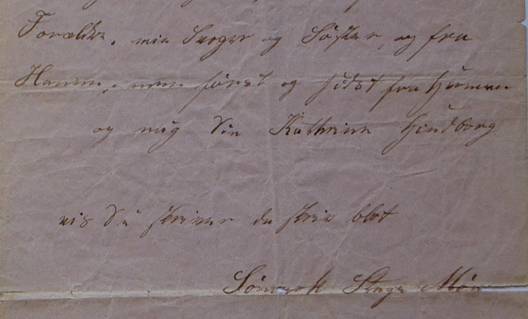 Forældre, min Svoger og Søster, og fra
men først og sidst fra
og mig din Kathrine Hindborg
vis du skriver da skriv blot
Stege Møn